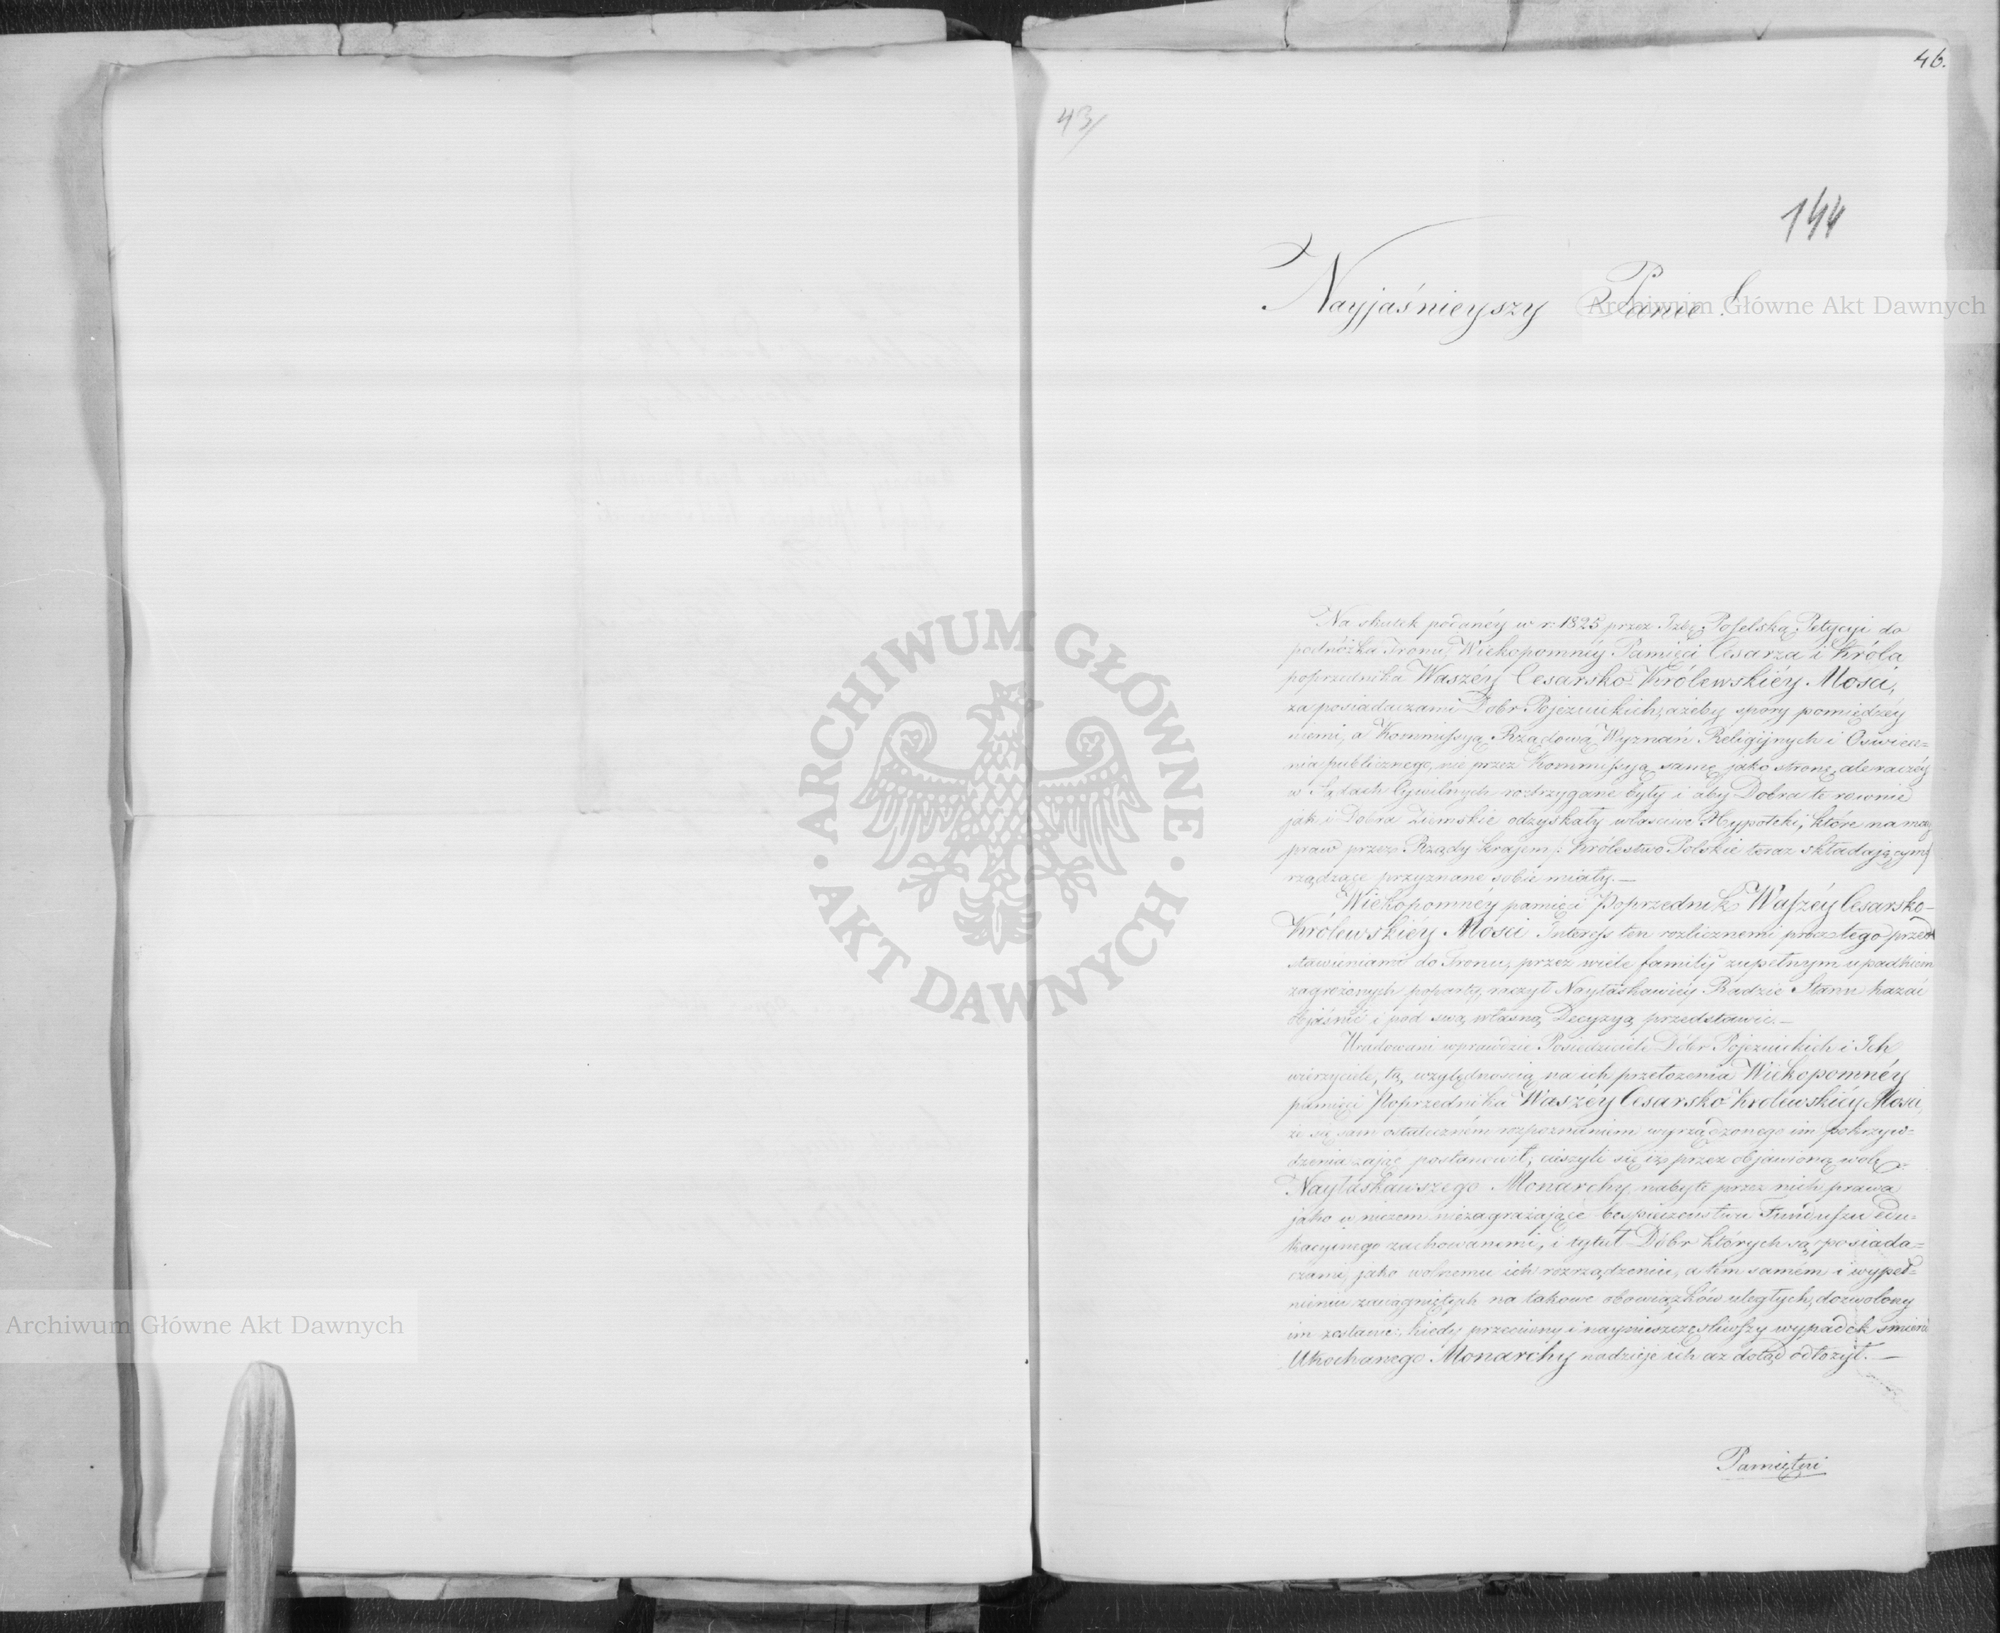 46.
43/
144
Nayjaśnieyszy Panie!
Na skutek podanéy w r. 1825 przez Izbę Poselską Petycyi do
podnóżka Tronu Wiekopomnéy Pamięci Cesarza i Króla
poprzednika Waszéy Cesarsko-Królewskiéy Mości,
za posiadaczami Dobr Pojezuickich, ażeby spory pomiędzéy
niemi, a Kommissyą Rządową Wyznań Religijnych i Oświece=
nia publicznego, nie przez Kommissyą samę jako stronę, ale raczéy
w Sądach Cywilnych roztrzygane były i aby Dobra te rownie
jak i Dobra Ziemskie odzyskały własciwe Hypoteki, które na mocy
praw przez Rządy krajem /: Królestwo Polskie teraz składającym:/
rządzące przyznane sobie miały.—
Wiekopomnéy pamięci Poprzednik Waszéy Cesarsko-
Królewskiéy Mości Interess ten rozlicznemi przed=
stawieniami do Tronu, przez wiele familiy zupełnym upadkiem
zagrożonych poparty, raczył Nayłaskawiéy Radzie Stanu kazać
objaśnić i pod swą własną Decyzyą przedstawić.—
Uradowani wprawdzie Posiedziciele Dóbr Pojezuickich i Ich
wierzyciele, tą względnością na ich przełożenia Wiekopomnéy
pamięci Poprzednika Waszéy Cesarsko Królewskiéy Mości,
że się sam ostateczném rozpoznaniem wyrządzonego im pokrzyw=
dzenia zająć postanowił, cieszyli się iż przez objawioną wolę
Nayłaskawszego Monarchy nabyte przez nich prawa
jako w niczem niezagrażające bespieczeństwu Funduszu edu=
kacyinego zachowanemi, i tytuł Dóbr których są posiada=
czami, jako wolnemu ich rozrządzeniu, a tém samém i wypeł=
nieniu zaciągniętych na takowe obowiązków uległych, dozwolony
im zostanie, kiedy przeciwny i naynieszczęśliwszy wypadek śmierci
Ukochanego Monarchy nadzieje ich aż dotąd odłożył.—
Pamiętni
Archiwum Główne Akt Dawnych
Archiwum Główne Akt Dawnych
ARCHIWUM GŁÓWNE
AKT DAWNYCH